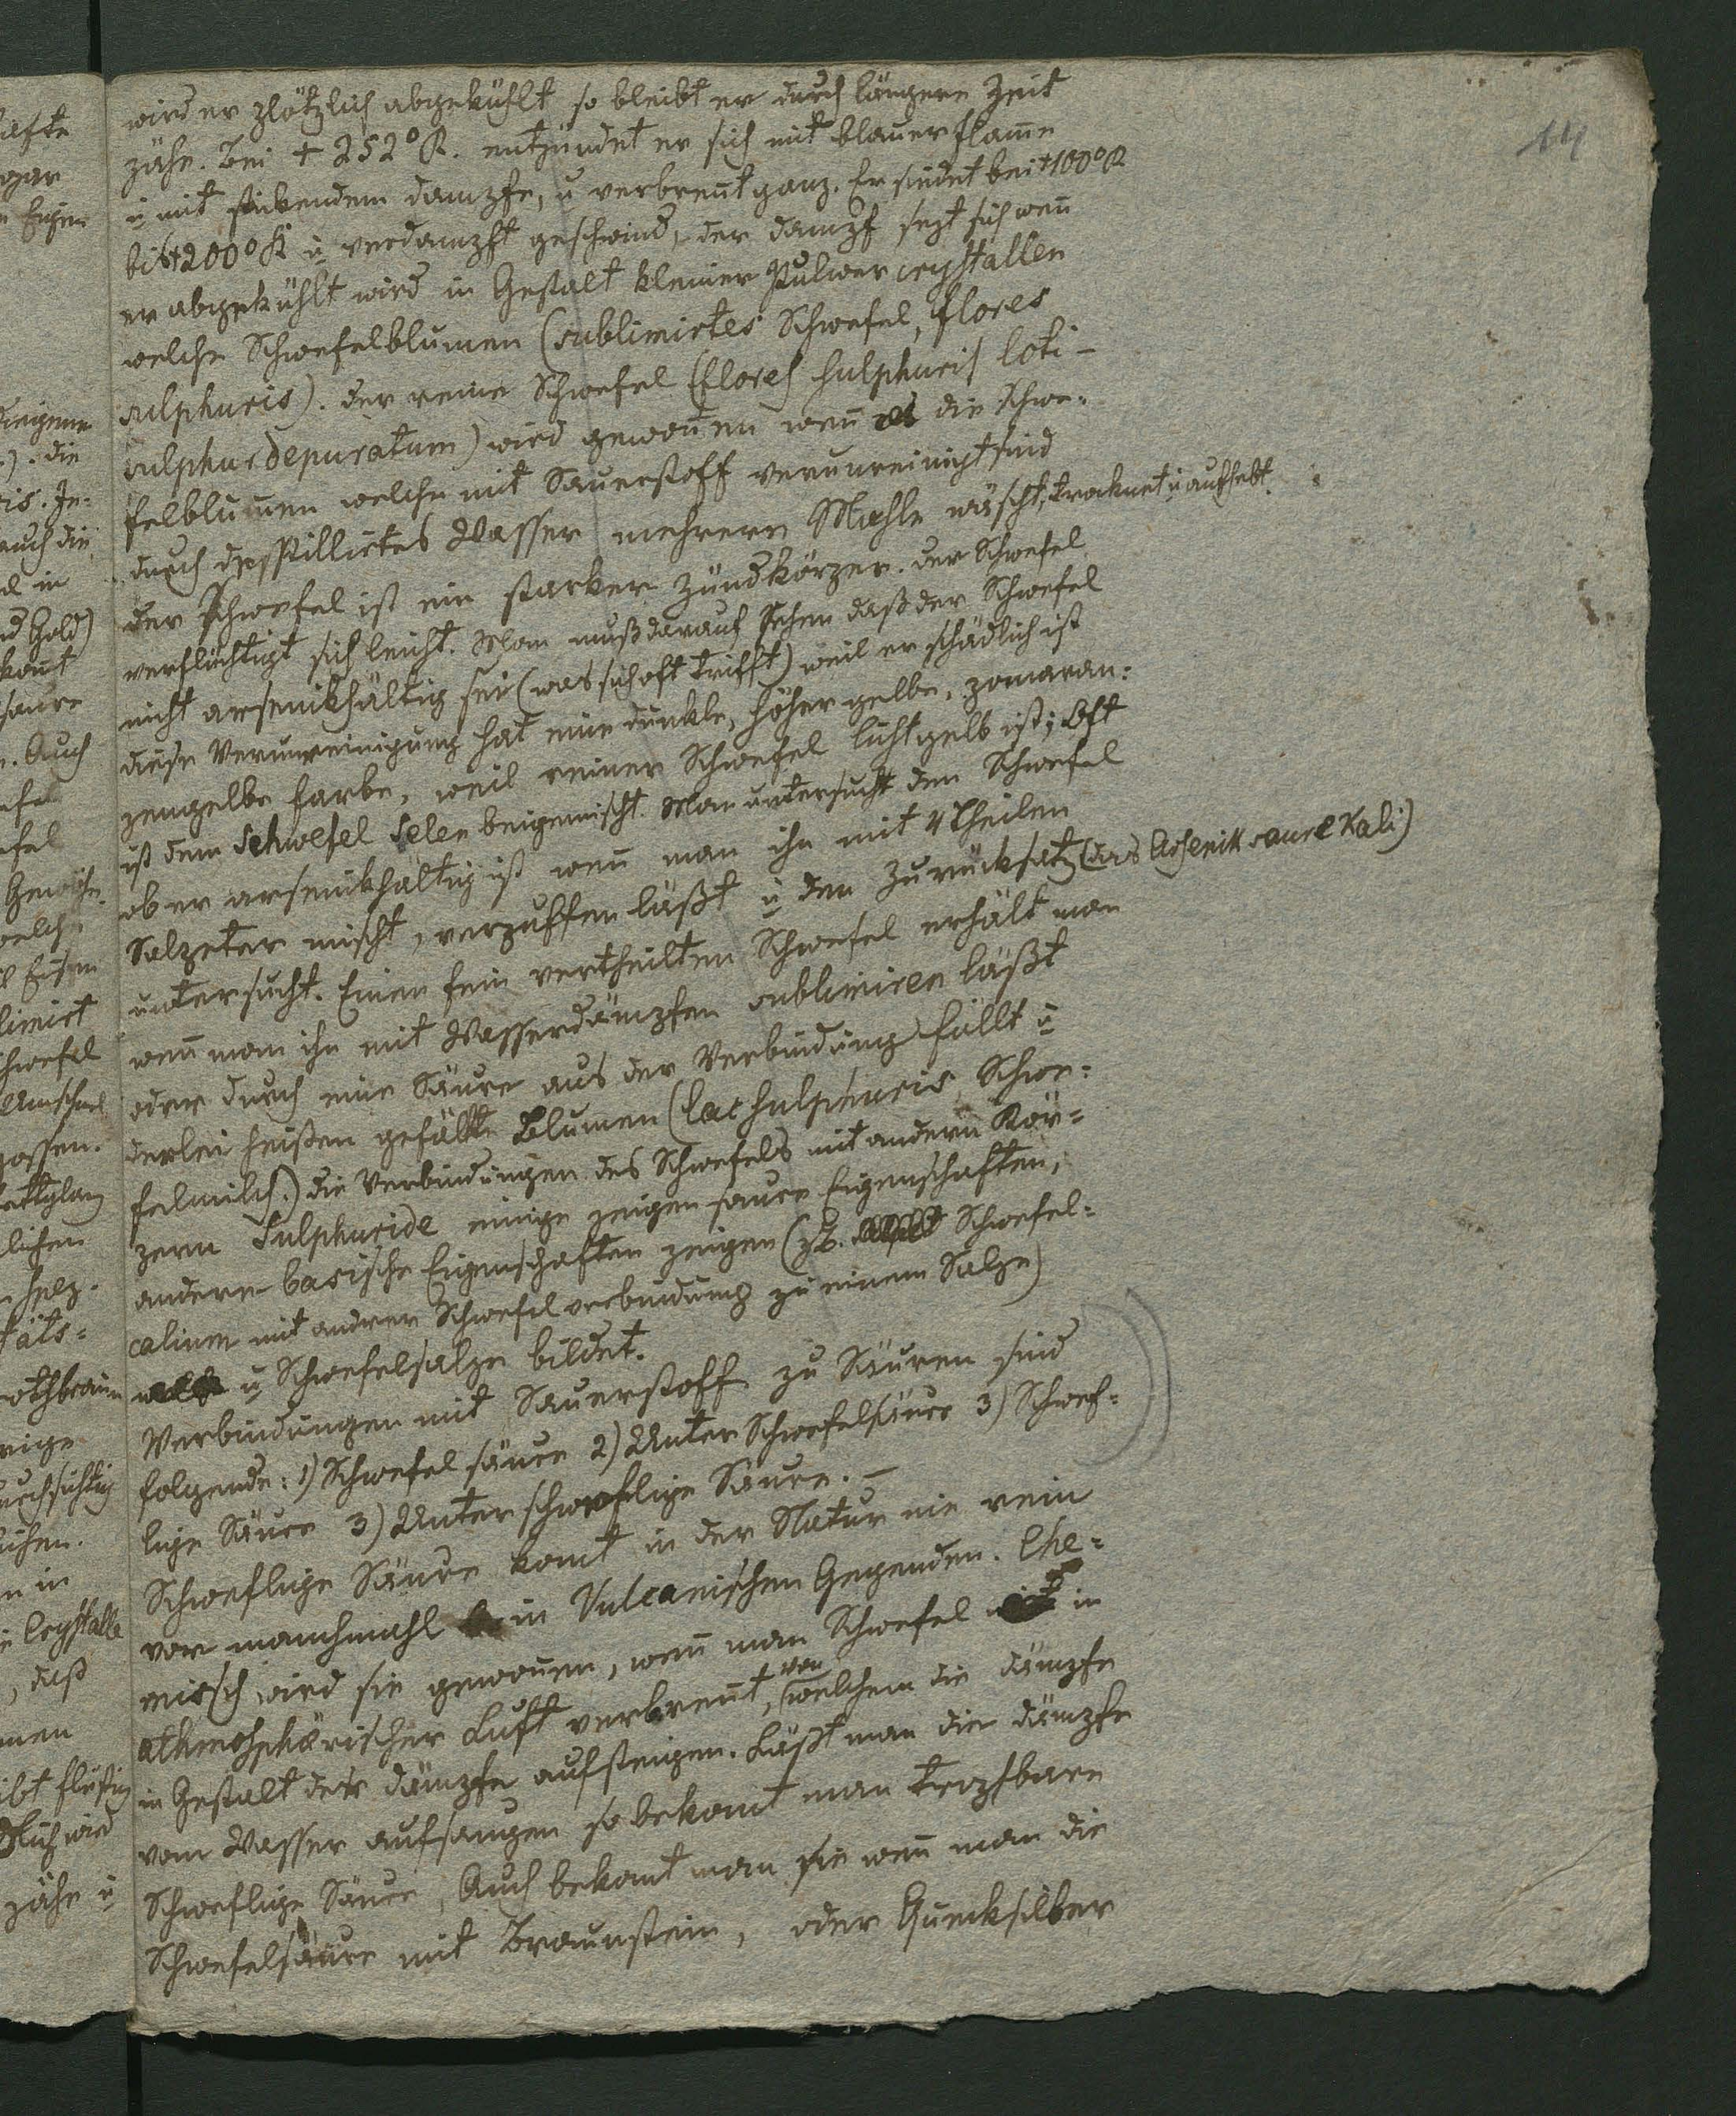 14
wird er plötzlich abgekühlt so bleibt er durch längere Zeit
zähe. Bei + 252° R. entzündet er sich mit blauer Flam̅e
u̅ mit stikendem Dampfe, u verbren̅t ganz. Er siedet bei +100° R
bis +200° R u̅ verdampft geschwind, der Dampf sezt sich wen̅
er abgekühlt wird in Gestalt kleiner Pulver crystallen
welche Schwefelblumen (sublimirtes Schwefel, flores
sulphuris). der reine Schwefel (flores sulphuris loti –
sulphur depuratum) wird gewon̅en wen̅ die Schwe-
felblumen welche mit Sauerstoff verunreinigt sind
durch desstillirtes Wasser mehrere Mahle wäscht, troknet u̅ aufhebt.
der Schwefel ist ein starker Zündkörper. der Schwefel
verflüchtigt sich leicht. Man muß darauf sehen daß der Schwefel
nicht arsenikhältig sei (was sich oft trifft) weil er schädlich ist
diese Verunreinigung hat eine dunkle, höher gelbe, pomeran-
zengelbe Farbe, weil reiner Schwefel lichtgelb ist; Oft
ist dem Schwefel Selen beigemischt. Man untersucht den Schwefel
ob er arsenikhältig ist wen̅ man ihn mit 4 Theilen
Salpeter mischt, verpuffen läßt u̅ den Zurücksatz (das Arsenik saure Kali)
untersucht. Einen fein vertheilten Schwefel erhält man
wen̅ man ihn mit Wasserdämpfen sublimiren läßt
oder durch eine Säure aus der Verbindung fällt u̅
derlei heißen gefällte Blumen (lac sulphuris, Schwe-
felmilch.) die Verbindungen des Schwefels mit andern Kör-
pern Sulphuride einige zeigen saure Eigenschaften,
andere basische Eigenschaften zeigen (zB. Schwefel-
calium mit andrer Schwefelverbindung zu einem Salze)
u̅ Schwefelsalze bildet.
Verbindungen mit Sauerstoff zu Säuren sind
folgende: 1) Schwefelsäure 2) Unter Schwefelsäure 3) Schwef-
lige Säure 3) Unterschweflige Säure. –
Schweflige Säure kom̅t in der Natur nie rein
vor manchmahl in Vulcanischen Gegenden. Che-
misch wird sie gewon̅en, wen̅ man Schwefel in
athmosphärischer Luft verbren̅t, von welchem die Dämpfe
in Gestalt der Dämpfe aufsteigen. Läßt man die Dämpfe
vom Wasser aufsaugen so bekom̅t man tropfbare
Schweflige Säure, Auch bekom̅t man sie wen̅ man die
Schwefelsäure mit Braunstein, oder Quecksilber